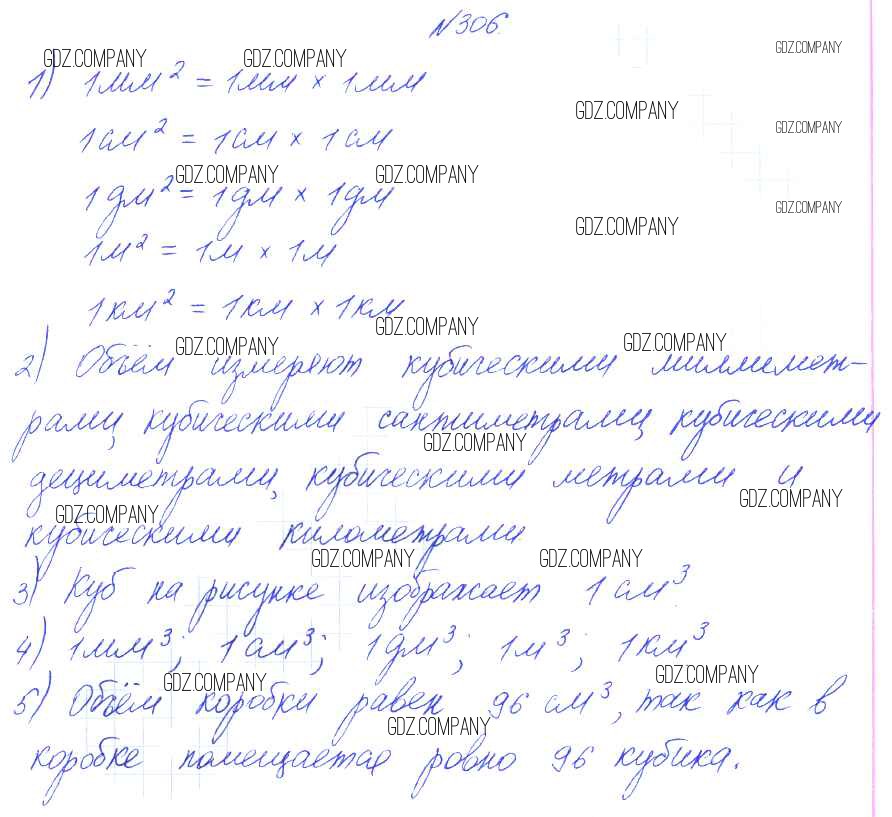 №306
GDZ.COMPANY GDZ.COMPANY GDZ.COMPANY
1) 1мм² = 1мм × 1мм
GDZ.COMPANY
1см² = 1см × 1см
GDZ.COMPANY
GDZ.COMPANY GDZ.COMPANY
1дм² = 1дм × 1дм
GDZ.COMPANY
GDZ.COMPANY
1м² = 1м × 1м
1км² = 1км × 1км
GDZ.COMPANY
GDZ.COMPANY GDZ.COMPANY
2) Объём измеряют кубическими миллимет-
рами, кубическими сантиметрами, кубическими
GDZ.COMPANY
дециметрами, кубическими метрами и
GDZ.COMPANY
GDZ.COMPANY
кубическими километрами
GDZ.COMPANY GDZ.COMPANY
3) Куб на рисунке изображает 1см³
4) 1мм³; 1см³; 1дм³; 1м³; 1км³
GDZ.COMPANY GDZ.COMPANY
5) Объём коробки равен 96 см³, так как в
GDZ.COMPANY
коробке помещается ровно 96 кубика.